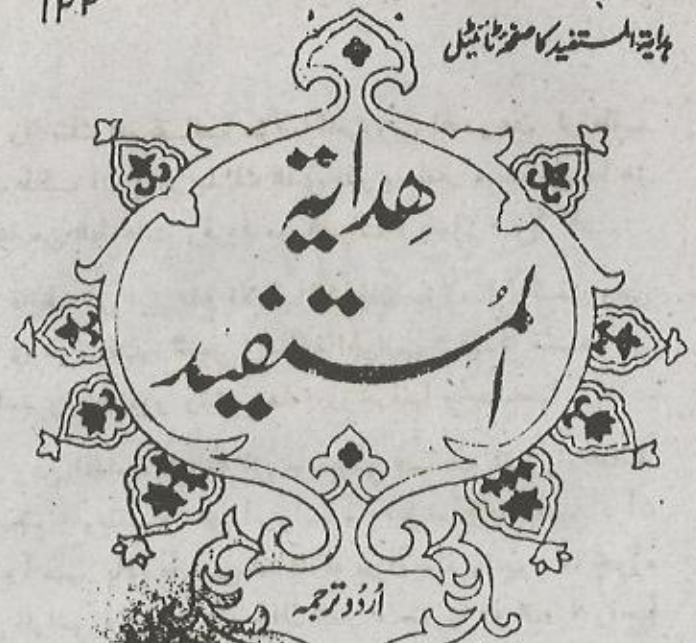 ۱۲۲
ہدایۃ المستفید کا صفحۂ ٹائیٹل
ھِدایَۃ
المُستفید
اُردُو ترجمہ